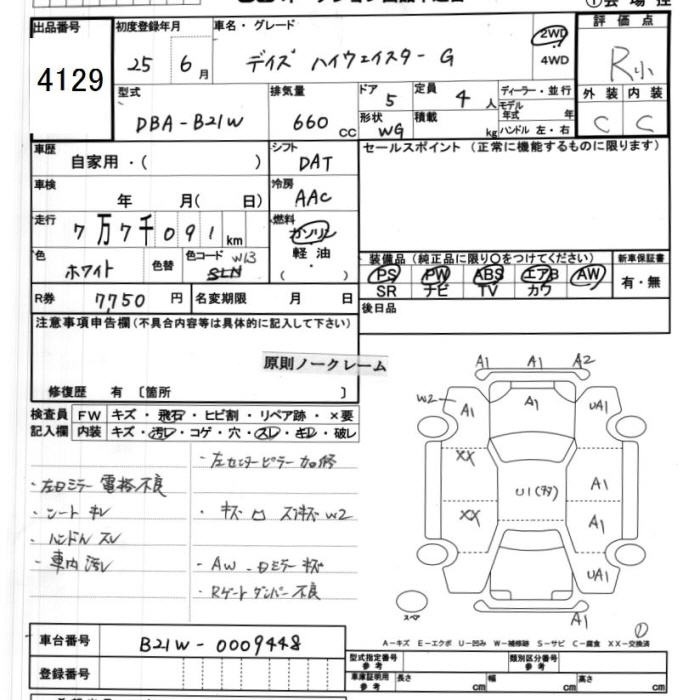 ①会場控
出品番号
4129
初度登録年月
25 6月
車名・グレード
デイズ ハイウェイスター G
2WD
4WD
評価点
R小
外装 内装
C C
型式
DBA-B21W
排気量
660 CC
ドア
5
定員
4 人
形状
WG
積載
kg
ディーラー・並行
モデル
年式 年
ハンドル 左・右
車歴
自家用・( )
シフト
DAT
セールスポイント (正常に機能するものに限ります)
車検
年 月( 日)
冷房
AAC
走行
7万7千091km
燃料
ガソリン
軽油
( ・ )
色
ホワイト
色替
色コード W13
R券 7,750 円
名変期限 月 日
装備品(純正品に限り○をつけてください)
PS PW ABS エアB AW
SR ナビ TV カワ
新車保証書
有・無
後日品
注意事項申告欄(不具合内容等は具体的に記入して下さい)
原則ノークレーム
修復歴 有〔箇所 〕
検査員
記入欄
FW キズ・飛石・ヒビ割・リペア跡・×要
内装 キズ・汚レ・コゲ・穴・スレ・キレ・破レ
・左センターピラー加修
・左Dミラー電格不良
・シートキレ
・キズ 凹 スンキズ W2
・ハンドルスレ
・車内汚レ
・AW・Dミラーキズ
・Rゲートダンパー不良
A1 A1 A2
W2 A1 A1 UA1
XX A1
U1(多)
XX A1
UA1
スペア
A1
①
A-キズ E-エクボ U-凹み W-補修跡 S-サビ C-腐食 XX-交換済
車台番号 B21W-0009448
登録番号
型式指定番号
参考
類別区分番号
参考
車庫証明用
参考
長さ cm
幅 cm
高さ cm